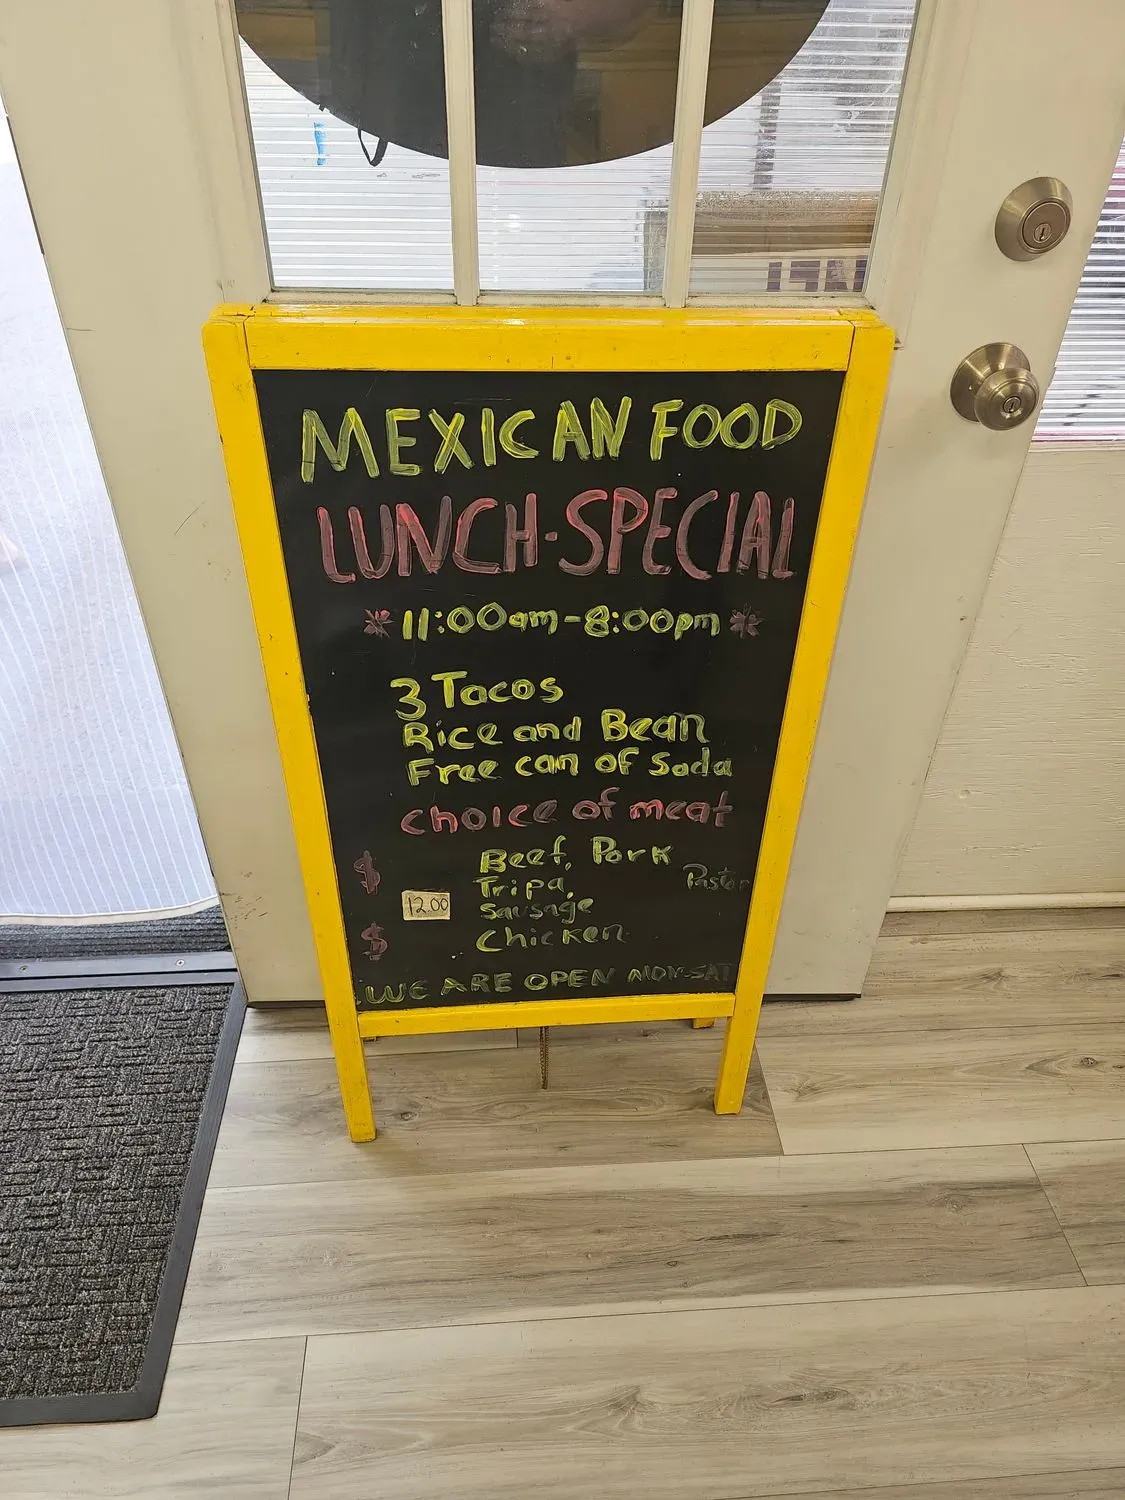 MEXICAN FOOD
LUNCH·SPECIAL
*11:00am-8:00pm*
3 Tacos
Rice and Bean
Free can of Soda
choice of meat
$ Beef, Pork
Tripa, Pastor
12.00 Sausage
$ Chicken
WE ARE OPEN MON-SAT